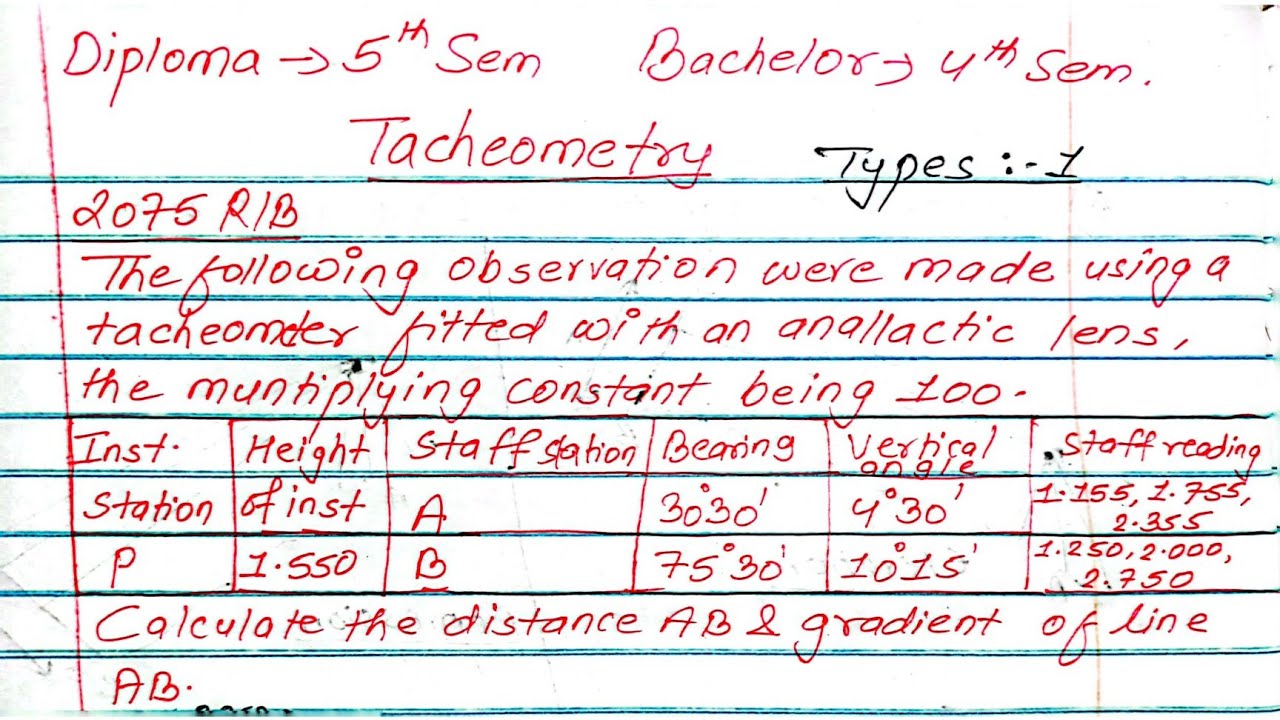 Diploma → 5th Sem Bachelor → 4th Sem.
Tacheometry Types :- 1
2075 R/B
The following observation were made using a
tacheometer fitted with an anallactic lens,
the muntiplying constant being 100.
Inst. Height Staff station Bearing Vertical angle Staff reading
Station of inst A 30°30' 4°30' 1.155, 1.755, 2.355
P 1.550 B 75°30' 10°15' 1.250, 2.000, 2.750
Calculate the distance AB & gradient of line
AB.